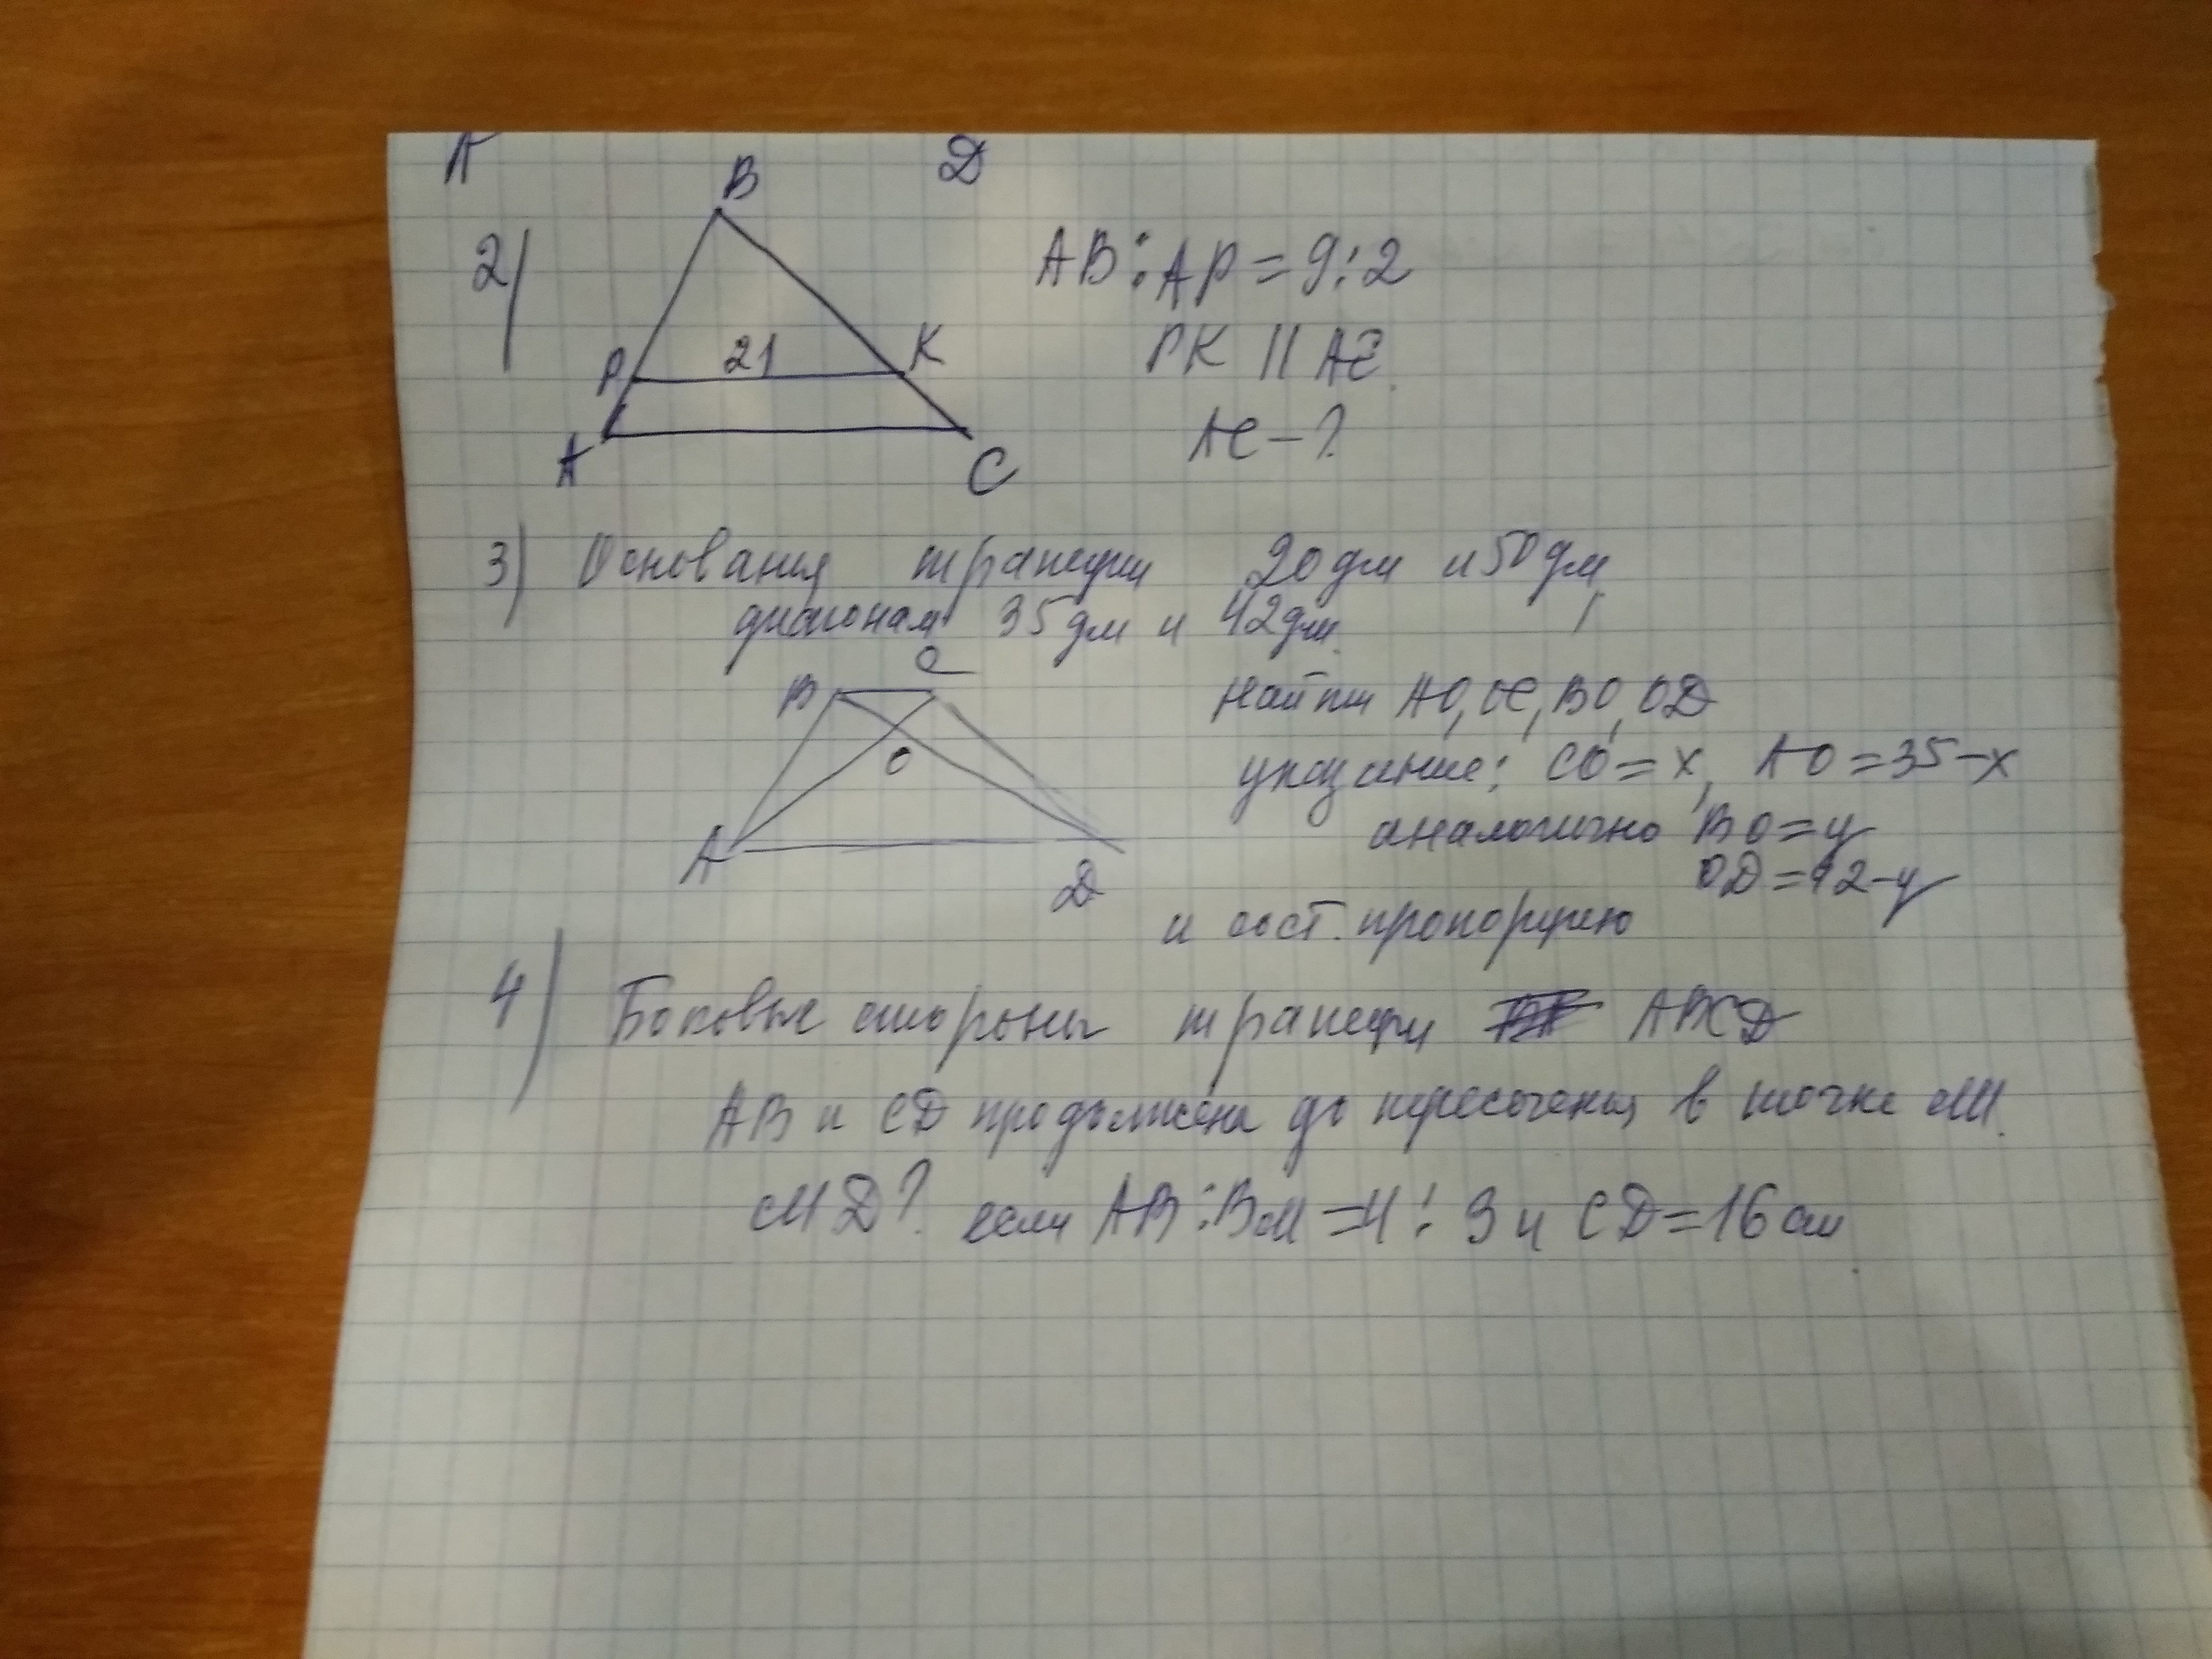 А D
B
2)
AB:AP=9:2
P 21 K
PK || AC
A C
AC-?
3) Основания трапеции 20дм и 50дм,
диагонали 35дм и 42дм.
B C
O
A D
Найти АО, ОС, ВО, ОD
указание: СО=х, АО=35-х
аналогично ВО=у
OD=42-у
и сост. пропорцию
4) Боковые стороны трапеции ABCD
АВ и CD продолжена до пересечения в точке М.
MD? если AB:BM=4:3 и CD=16см